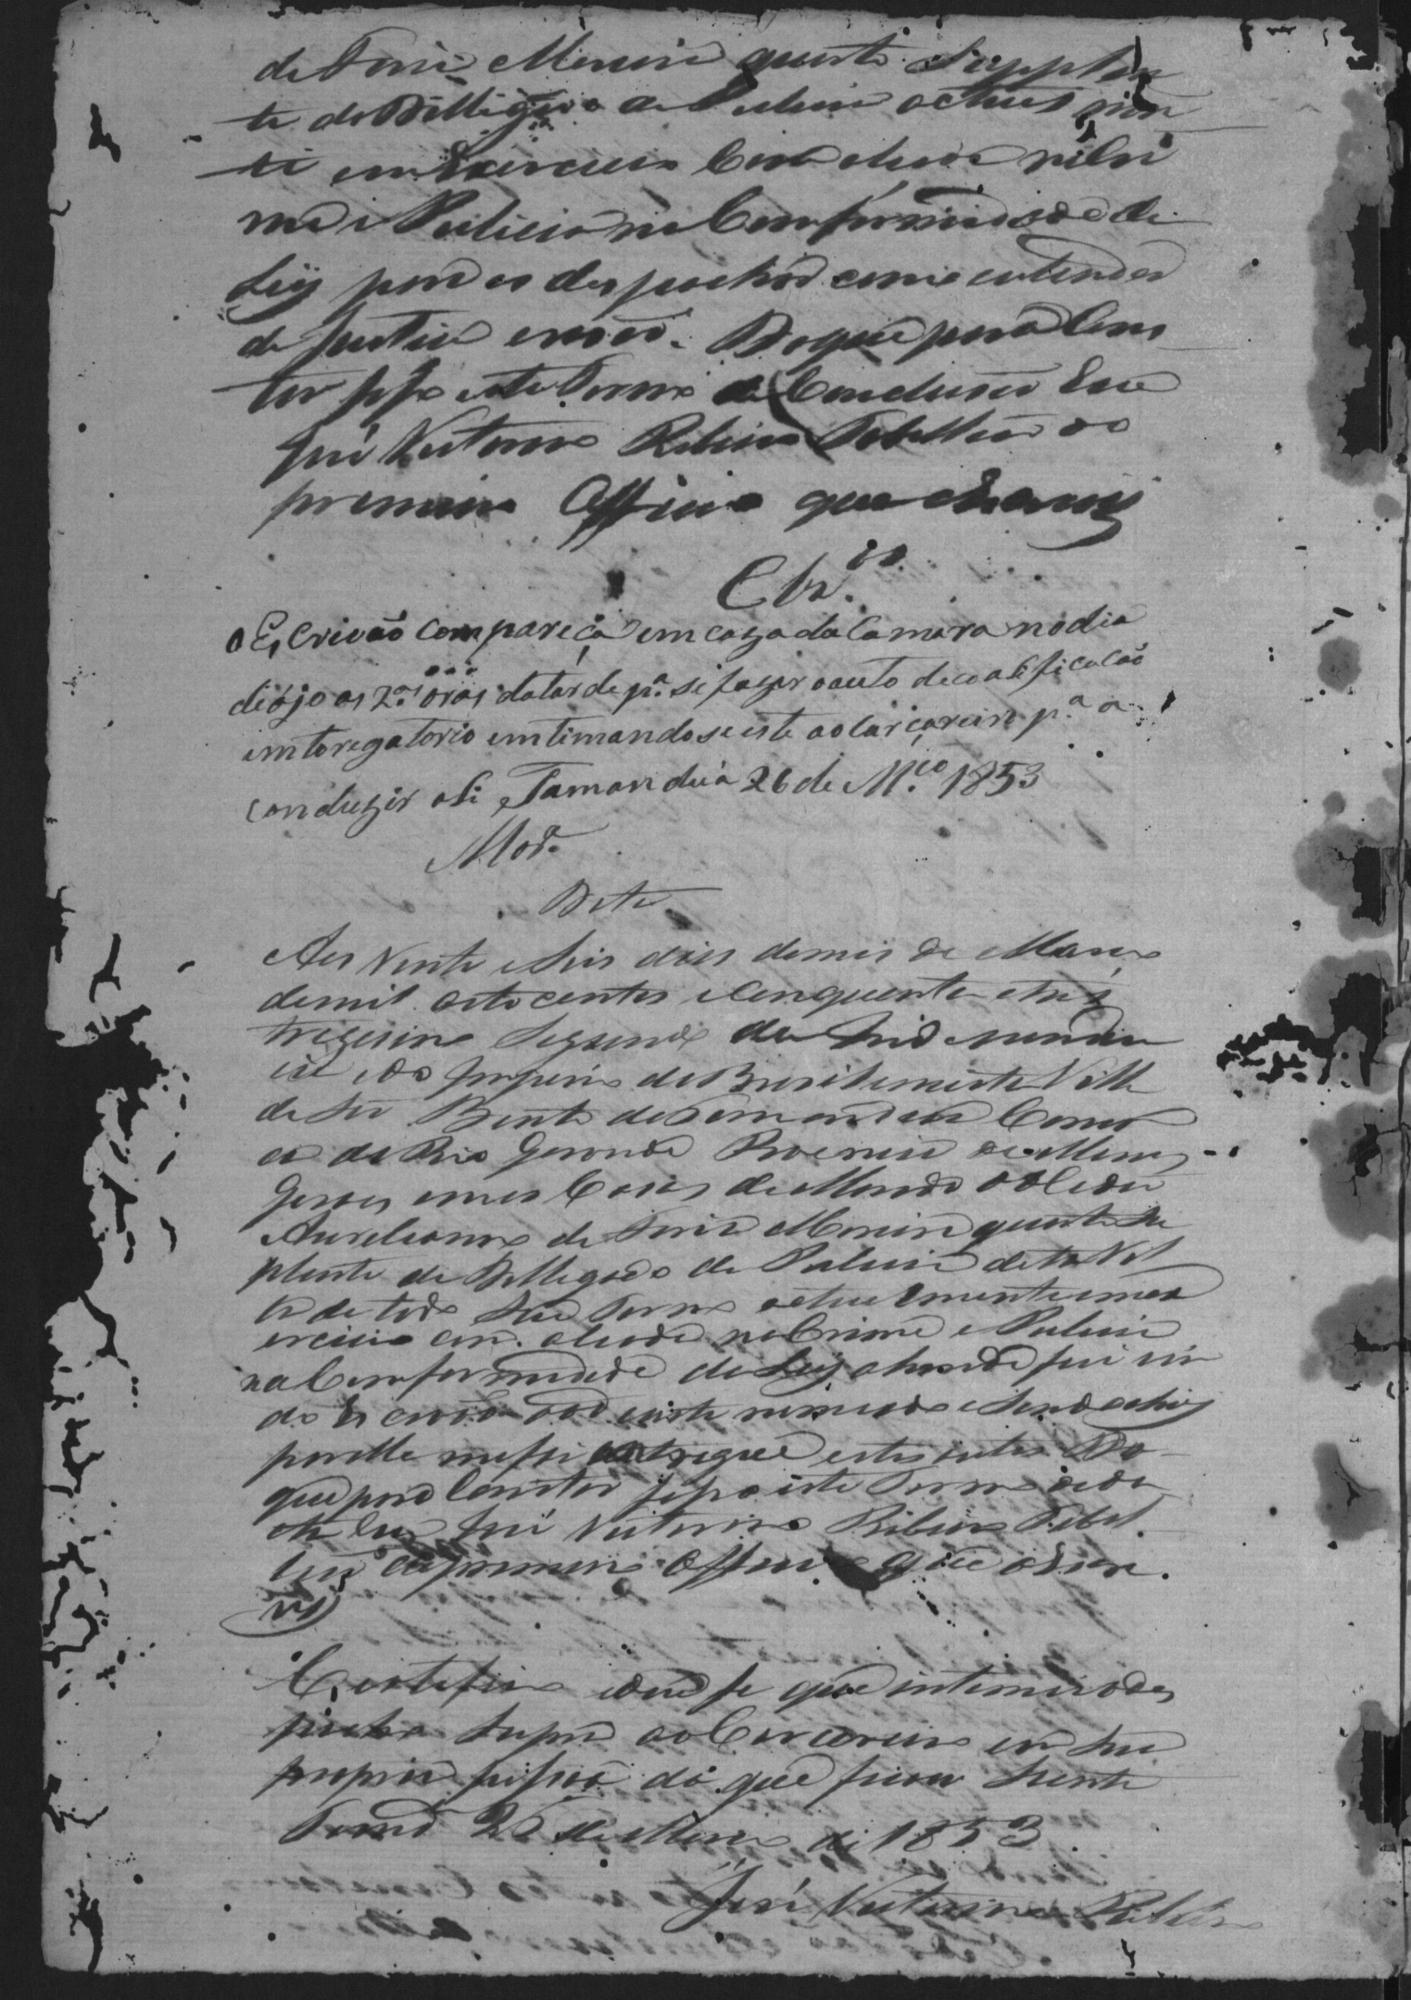 de Faria Moreira quarto Supplen
te do Dellegado de Pulicia actual men
te em Exercicio Com alsada no Cri
me e Pulicia na Conformidade da
Ley para os despachar como entender
de Justiça
Do que para Cons
tar fiz este Termo de Concluzão Eu
José Victorino Ribeiro Tabellião do
primeiro Officio que escrevy
Clz.os
O Escrivão compareça em caza da Camara no dia
de ojo as 2.as oras da tarde p.a se fazer o auto de coalificacão
intoregatorio emtimandose este ao carcareiro p.a o
conduzir ali Tamanduá 26 de M.ço 1853
Mor.a
Data
Aos Vinte e Seis dias do mes de Março
de mil oito centos e Cinquenta e tres
trigesimo Segundo da Independen
cia e do Imperio do Brasil nesta Villa
de São Bento de Tamanduá Comar
ca do Rio Grande Provincia de Minas
Gerais em as Casas de Morada do Cidadão
Aureliano de Faria Moreira quarto Su
plente do Dellegado de Pulicia desta Vil
la de todo Seu Termo actualmente em ex
ercicio com alsada no Crime e Pulicia
na Conformidade da Ley ahonde fui vin
do Escrivão ao diante nomeado e Sendo ahi
por elle me foi entregue estes autos Do
que para Constar fiz este Termo de da
ta Eu José Victorino Ribeiro Tabel
lião do primeiro Officio que o escre
vy
Certefico e dou fe que intimei o des
pacho Supra ao Carcereiro em Sua
propria pessoa do que ficou Siente
Tamd.a 26 de Março de 1853
José Victorino Ribeiro